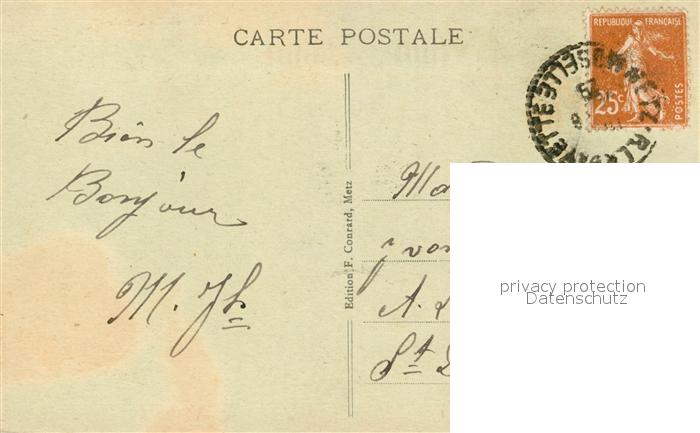 CARTE POSTALE
REPUBLIQUE FRANÇAISE
25c
POSTES
Bien le
Bonjour
Edition F. Conrard, Metz
A.
St
privacy protection
Datenschutz